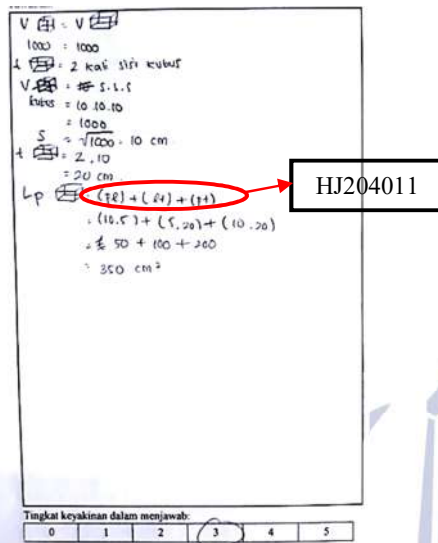 V = V
1000 = 1000
t = 2 kali sisi kubus
V = s.s.s
kubus = 10.10.10
= 1000
s = √1000 = 10 cm
t = 2.10
= 20 cm
Lp = (pl) + (lt) + (pt)
HJ204011
= (10.5) + (5.20) + (10.20)
= 50 + 100 + 200
= 350 cm²
Tingkat keyakinan dalam menjawab:
0 1 2 3 4 5